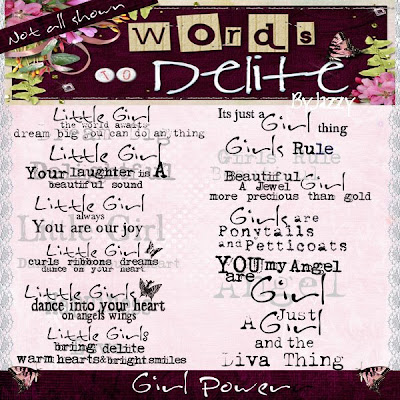 Not all shown
Words
TO
Delite
By Jazzy
Little Girl
the world awaits
dream big you can do an thing
Little Girl
Your laughter is A
beautiful sound
Little Girl
always
You are our joy
Little Girl
curls ribbons dreams
dance on your heart
Little Girls
dance into your heart
on angels wings
Little Girls
bring delite
warm hearts & bright smiles
Its just a
Girl thing
Girls Rule
Beautiful
A Jewel Girl
more precious than gold
Girls are
Ponytails
and Petticoats
YOU my Angel
are Girl
Just
A Girl
and the
Liva Thing
Girl Power